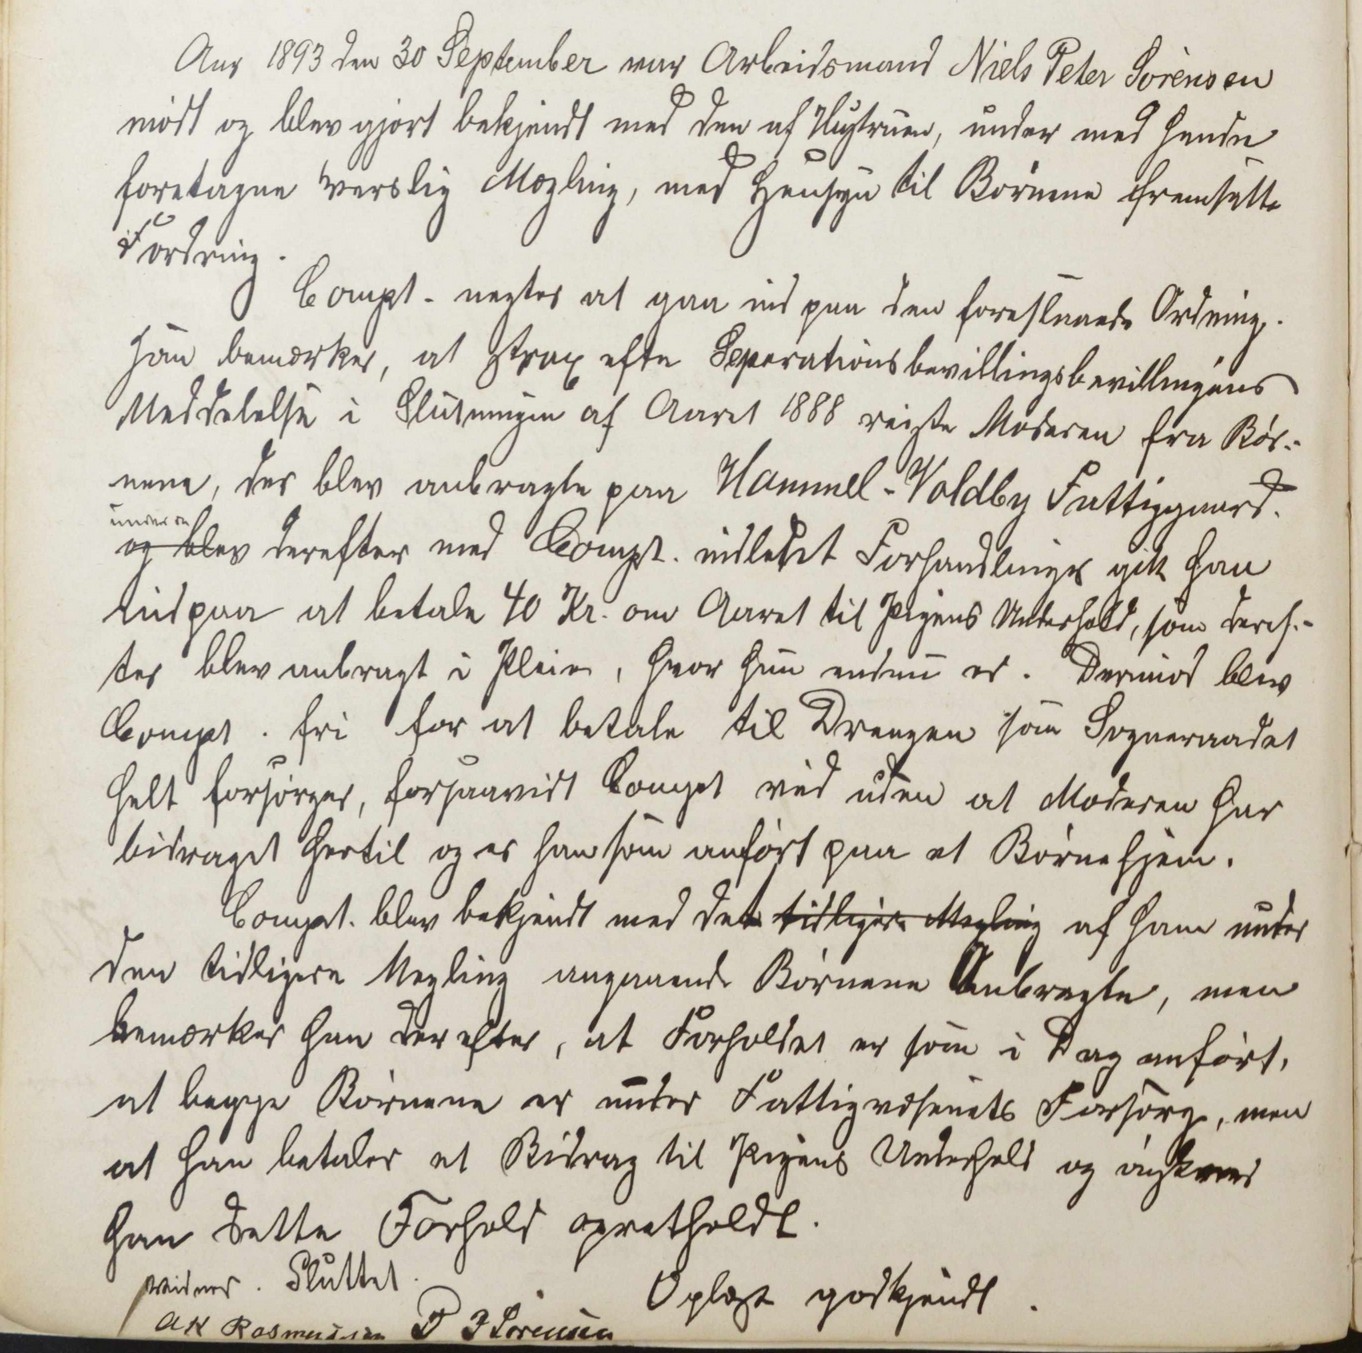 Aar 1893 den 30 September var Arbeidsmand Niels Peter Sørensen
mødt og blev gjort bekjendt med den af Hustruen, under med hende
foretagne verslig Mægling, med Hensyn til Børnene fremsatte
Fordring.
Compt. negter at gaa ind paa den foreslaaede Ordning.
Han bemærker, at strax efter Seperationsbevillingsbevillingens
Meddelelse i Slutningen af Aaret 1888 reiste Moderen fra Bør-
nene, der blev anbragte paa Hammel-Voldby Fattiggaard.
under en
og blev derefter med Compt. indledet Forhandlinger gik han
ind paa at betale 40 Kr. om Aaret til Pigens Underhold, som deref-
ter blev anbragt i Pleie, hvor hun endnu er. Derimod blev
Compt. fri for at betale til Drengen som Sogneraadet
helt forsørger, forsaavidt Compt ved uden at Moderen har
bidraget hertil og er han som anført paa et Børnehjem.
Compt. blev bekjendt med det tidligere Megling af ham under
den tidligere Megling angaaende Børnene Anbragte, men
bemærker han derefter, at Forholdet er som i Dag anført,
at begge Børnene er under Fattigvæsenets Forsørg, men
at han betaler et Bidrag til Pigens Underhold og ønskes
han dette Forhold opretholdt.
Sluttet. Oplæst godkjendt.
AK Rasmussen P Sørensen